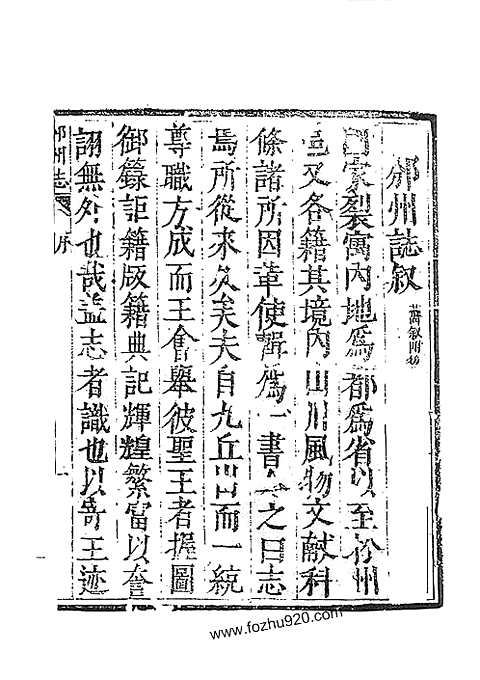 邠州誌叙 舊叙附
國家裂寓內地爲都爲省以至於州
邑又各籍其境內山川風物文獻科
條諸所因革使輯爲一書命之曰志
焉所從來久矣夫自九丘出而一統
尊職方成而王會舉彼聖王者握圖
御籙詎籍版籍典記輝煌繁富以奢
詡無外也哉蓋志者識也以寄王迹
邠州志 序
www.fozhu920.com